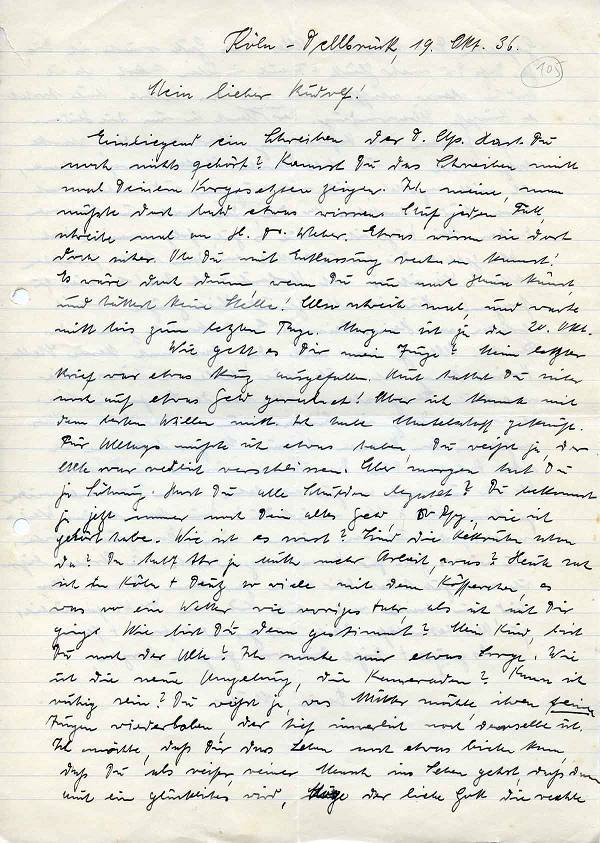 Köln-Dellbrück, 19. Okt. 36.
105
Mein lieber Rudolf!
Einliegend ein Schreiben der D. Hast Du
noch nichts gehört? Kannst Du das Schreiben nicht
mal Deinem Vorgesetzten zeigen. Ich meine, man
müßte doch bald etwas wissen. Auf jeden Fall,
schreibe mal an H. Dr. Weber. Etwas wissen sie dort
doch sicher. Ob Du mit Entlassung rechnen kannst!
Es wäre doch dumm wenn Du nun nach Hause kämst,
und hättest keine Stelle! Also schreib mal, und warte
nicht bis zum letzten Tage. Morgen ist ja der 20. Okt.
Wie geht es Dir mein Junge? Mein letzter
Brief war etwas kurz ausgefallen. Auch hattest Du sicher
noch auf etwas Geld gerechnet! Aber ich konnte mit
dem besten Willen nicht. Ich habe Mantelstoff gekauft.
Für Alltags mußte ich etwas haben, Du weißt ja, der
alte war restlos verschlissen. Übermorgen hast Du
ja Löhnung. Hast Du alle Schulden? Du bekommst
ja jetzt immer noch Dein altes Geld, 50 Pfg, wie ich
gehört habe. Wie ist es sonst? Sind die Rekruten schon
da? Da habt Ihr ja sicher mehr Arbeit, was? Heute sah
ich in Köln + Deutz so viele mit dem Köfferchen, es
war so ein Wetter wie voriges Jahr, als ich mit Dir
ging. Wie bist Du denn gestimmt? Mein Kind, bist
Du noch der Alte? Ich mache mir etwas Sorge. Wie
ist die neue Umgebung, die Kameraden? Kann ich
ruhig sein? Du weißt ja, was Mutter möchte, ihren
Jungen wiederhaben, der tief innerlich noch derselbe ist.
Ich möchte, daß Dir das Leben noch etwas bieten kann,
daß Du als reifer, reiner Mensch ins Leben gehst, daß dann
auch ein glückliches wird, Möge der liebe Gott die rechte